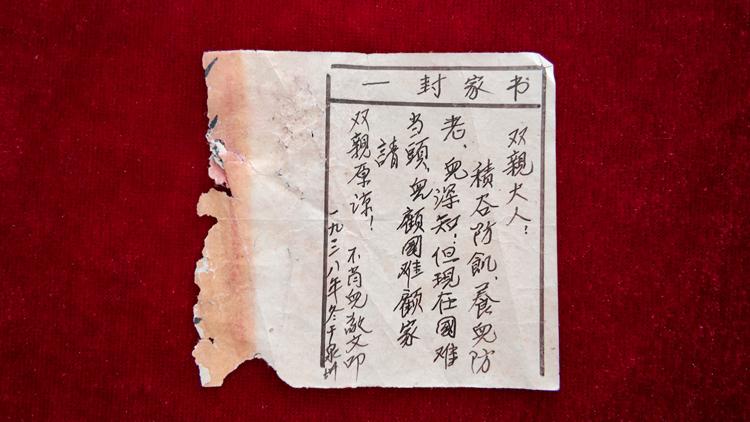 一封家书
双親大人：
積谷防飢、養兒防
老、兒深知；但現在國难
当頭，兒顧國难顧家
請
双親原谅！
不肖兒文叩
一九三八年冬于泉州